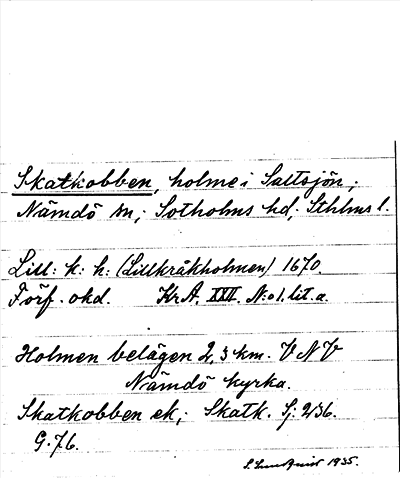 Skatkobben, holme i Saltsjön,;
Nämdö sn; Sotholms hd; Sthlms l.
Lill: k: h: (Lillkråkholmen) 1670.
Förf. okd. Kr A. XXII. N:o 1. lit. a.
Holmen belägen 2,3 km. V N V
Nämdö kyrka.
Skatkobben ek; Skatk. Sj: 236.
G. 76.
S. Lundqvist 1935.